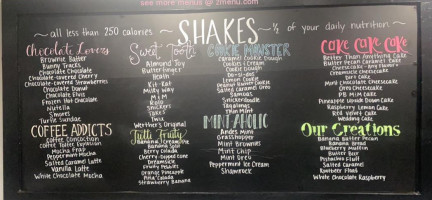 see more menus @ zmenu.com
SHAKES
~ all less than 250 calories ~
~ ½ of your daily nutrition ~
Chocolate Lovers
Brownie Batter
Bunny Tracks
Chocolate Chocolate
Chocolate-covered Cherry
Chocolate-covered Strawberries
Chocolate Donut
Chocolate Elvis
Frozen Hot Chocolate
Nutella
Smores
Turtle Sundae
COFFEE ADDICTS
Coffee Concoction
Coffee Toffee Explosion
Mocha Frap
Peppermint Mocha
Salted Caramel Latte
Vanilla Latte
White Chocolate Mocha
Sweet Tooth
Almond Joy
Butterfinger
Heath
Kit-Kat
Milky Way
M&M
Rolo
Snickers
Take 5
Twix
Werthers Original
Tutti Fruity
Banana Cream Pie
Banana Split
Berry Colada
Cherry-Dippe'cone
Dreamsicle
Fruity Pebbles
Orange Pineapple
Pina Colada
Strawberry Banana
COOKIE MONSTER
Caramel Cookie Dough
Cookies & Cream
Cookie Dough
Do-si-dos
Lemon Cookie
Peanut Butter Cookie
Salted Caramel Oreo
Samoas
Snickerdoodle
Tagalongs
Thin Mint
MINT AHOLIC
Andes Mint
Grasshopper
Mint Brownies
Mint Chip
Mint Oreo
Peppermint Ice Cream
Shamrock
CAKE CAKE CAKE
Better Than Anything Cake
Butter Pecan Caramel Cake
Cheesecake - Any Flavor
Creamsicle Cheesecake
Dirt Cake
Mint Chocolate Cheesecake
Oreo Cheesecake
PB M&M Cake
Pineapple Upside Down Cake
Raspberry Lemon Cake
Red Velvet Cake
Wedding Cake
Our Creations
Banana Butter Pecan
Banana Bread
Blueberry Muffin
Butter Beer
Pistachio Fluff
Salted Caramel
Rootbeer Float
White Chocolate Raspberry